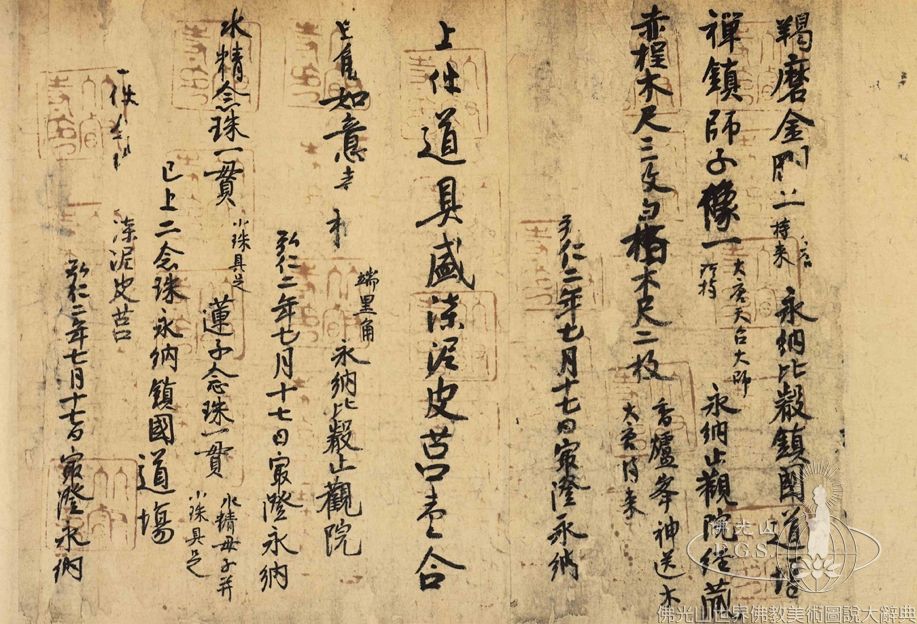 羯磨金剛二 持来 永納比叡鎮國道場
禪鎮師子像一 大唐天台大師 所持 永納止觀院經藏
赤桯木尺三枚 白栢木尺二枚 香爐峯神送木 大唐持来
弘仁二年七月十七日 最澄永納
上件道具盛漆泥皮苔壱合
如意 端黑角 永納比叡止觀院
弘仁二年七月十七日 最澄永納
水精念珠一貫 小珠具足 蓮子念珠一貫 水精母子并 小珠具足
已上二念珠永納鎮國道場
漆泥皮苔
弘仁二年七月十七日 最澄永納
佛光山
D.G.S.
佛光山世界佛教美術圖說大辭典